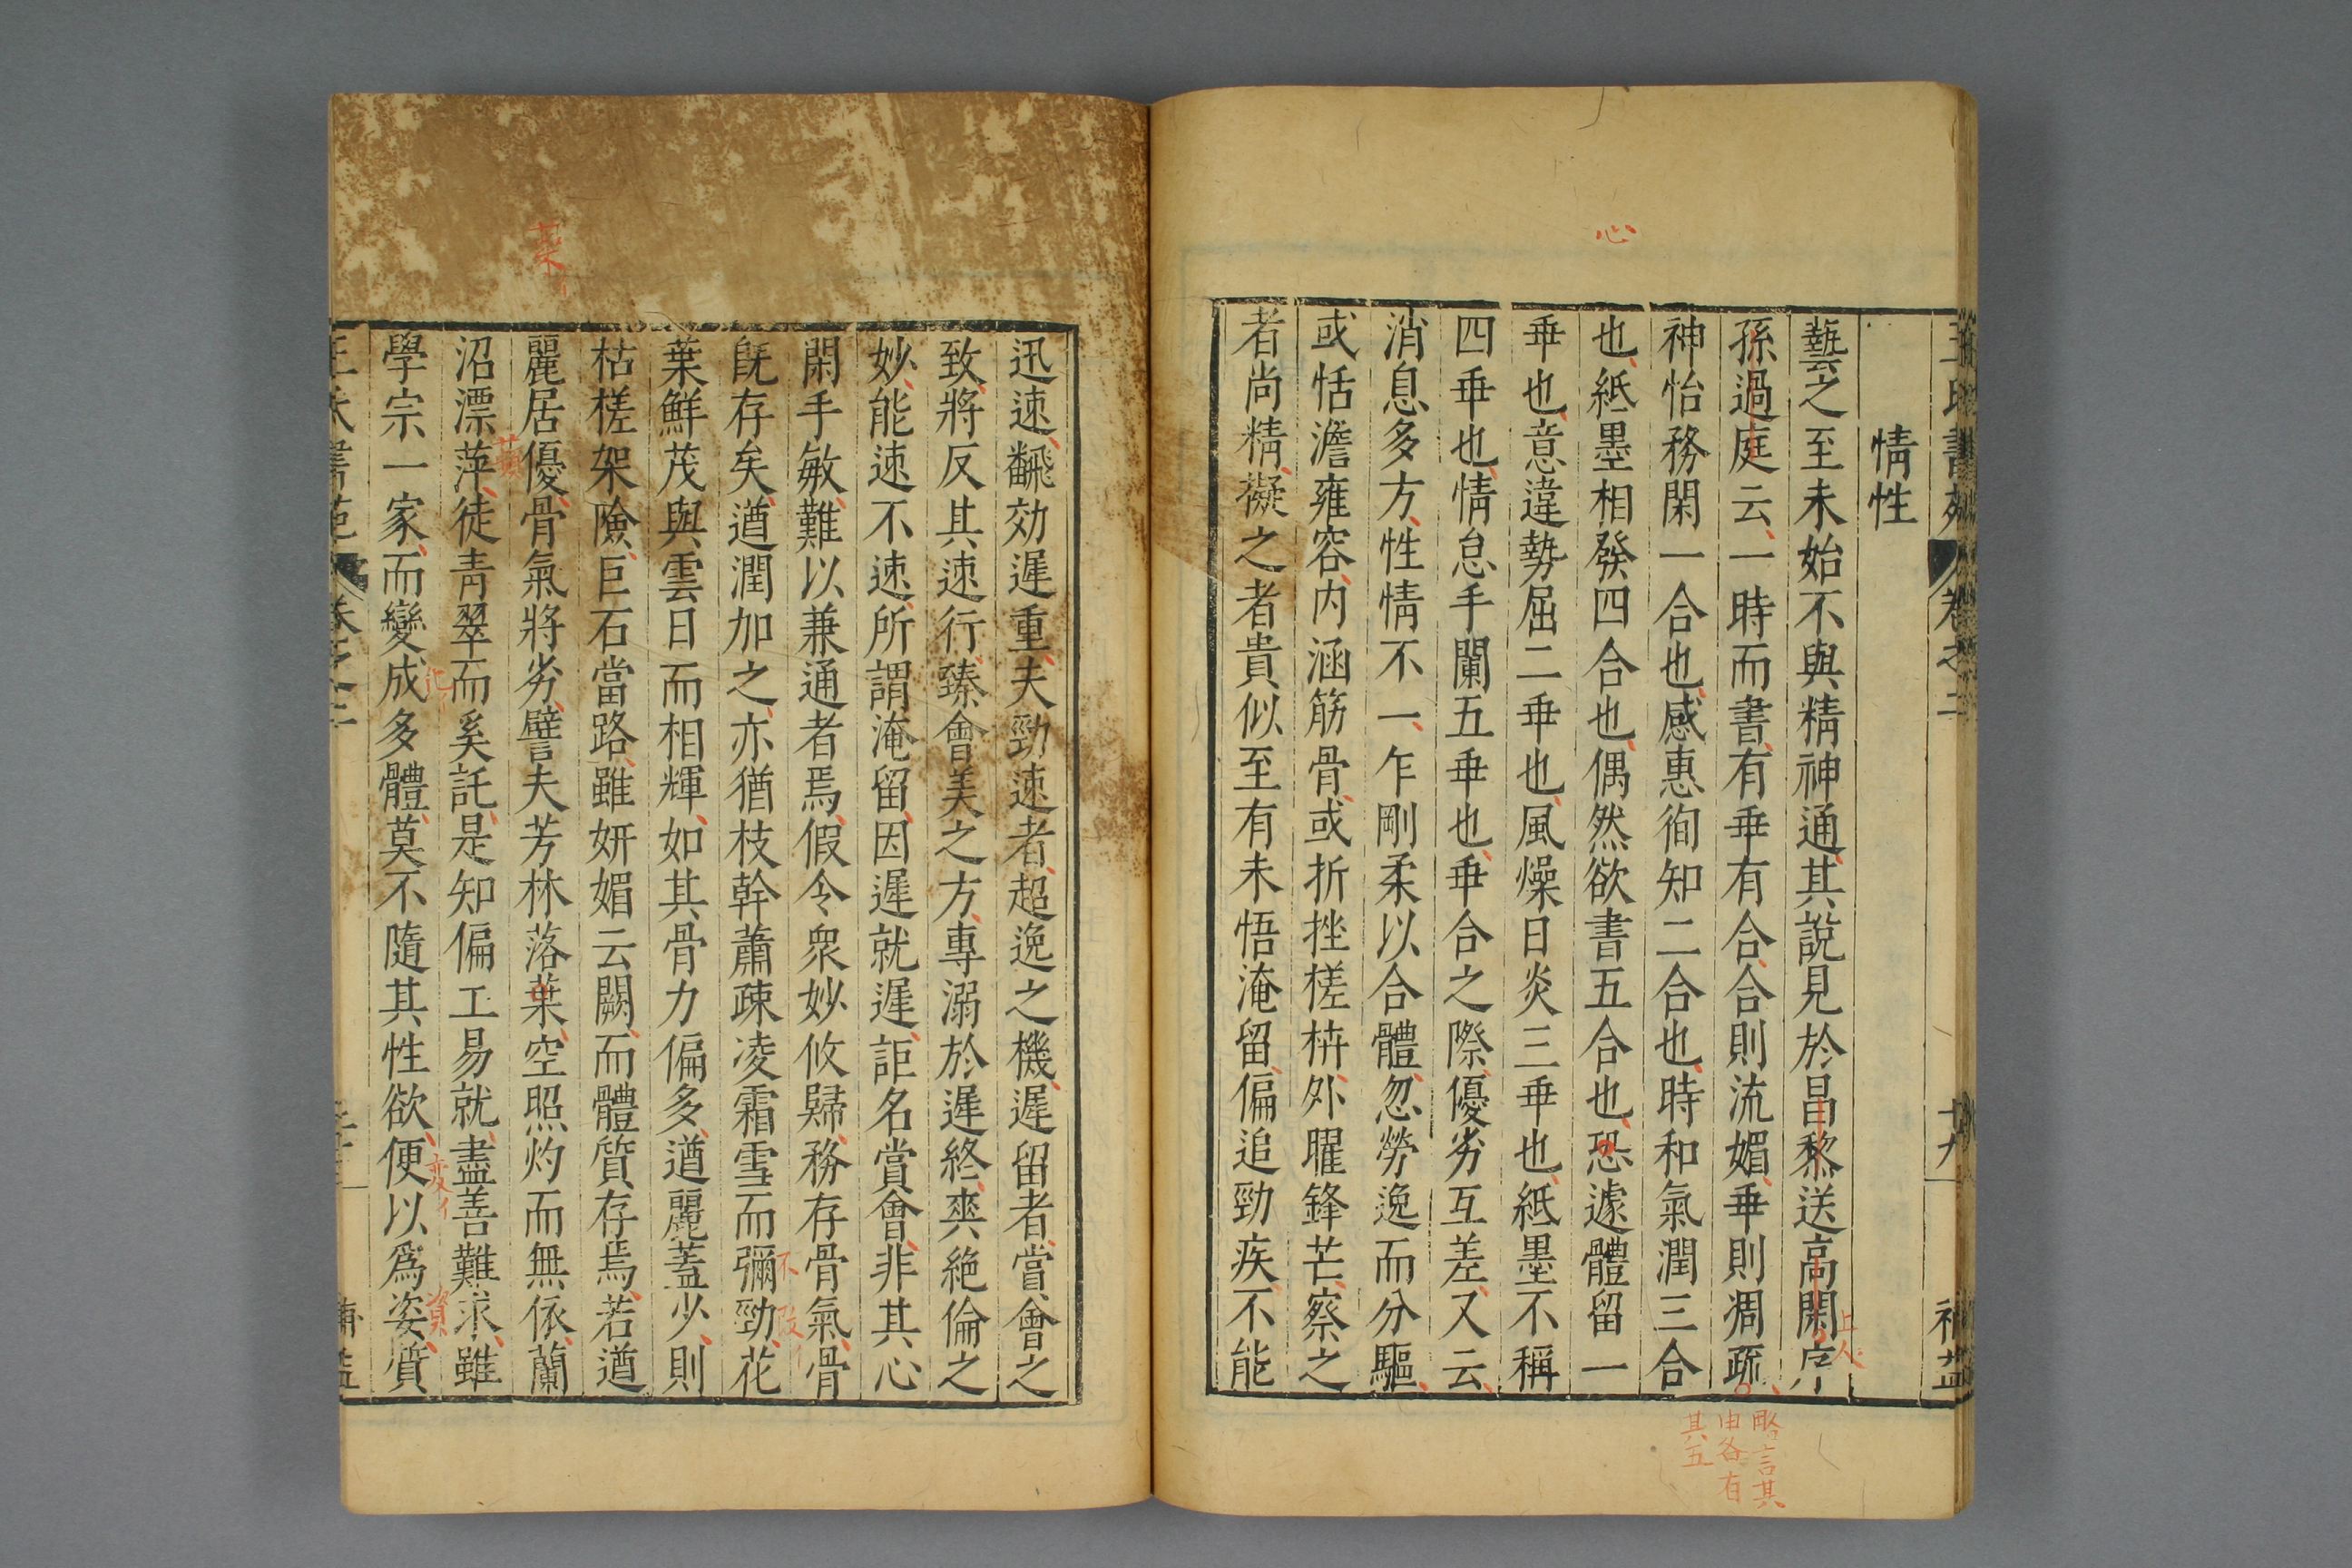 情性
藝之至未始不與精神通其說見於昌黎送高閑序
孫過庭云一時而書有乖有合合則流媚乖則凋疏
神怡務閑一合也感惠徇知二合也時和氣潤三合
也紙墨相發四合也偶然欲書五合也恐遽體留一
乖也意違勢屈二乖也風燥日炎三乖也紙墨不稱
四乖也情怠手闌五乖也乖合之際優劣互差又云
消息多方性情不一乍剛柔以合體忽勞逸而分驅
或恬澹雍容内涵筋骨或折挫槎枿外曜鋒芒察之
者尚精擬之者貴似至有未悟淹留偏追勁疾不能
心
上人
略言其
由各有
其五
迅速飜効遲重夫勁速者超逸之機遲留者賞會之
致將反其速行臻會美之方專溺於遲終爽絶倫之
妙能速不速所謂淹留因遲就遲詎名賞會非其心
閑手敏難以兼通者焉假令衆妙攸歸務存骨氣骨
旣存矣遒潤加之亦猶枝幹蕭疎凌霜雪而彌勁花
葉鮮茂與雲日而相輝如其骨力偏多遒麗蓋少則
枯槎架險巨石當路雖妍媚云闕而體質存焉若遒
麗居優骨氣將劣譬夫芳林落葉空照灼而無依蘭
沼漂萍徒青翠而奚託是知偏工易就盡善難求雖
學宗一家而變成多體莫不隨其性欲便以爲姿質
變
資